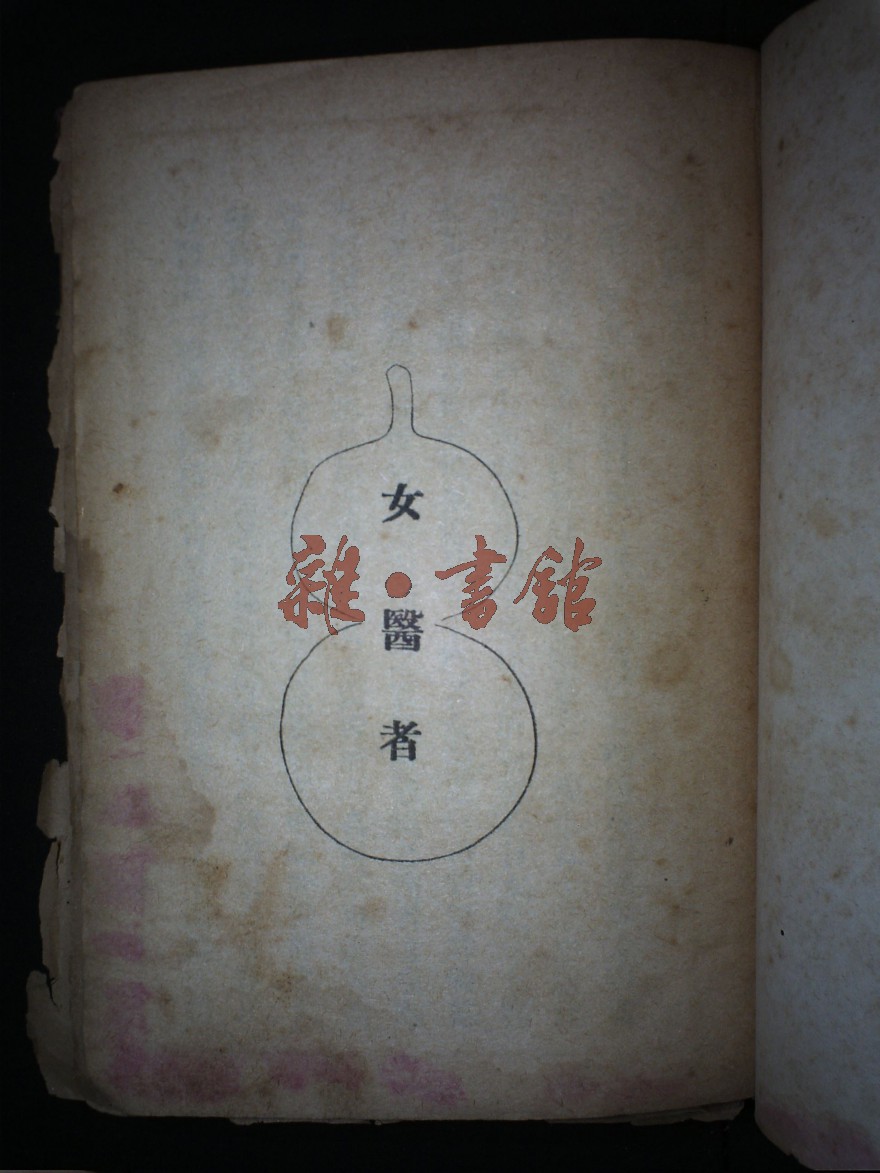 女醫者
雜·書館